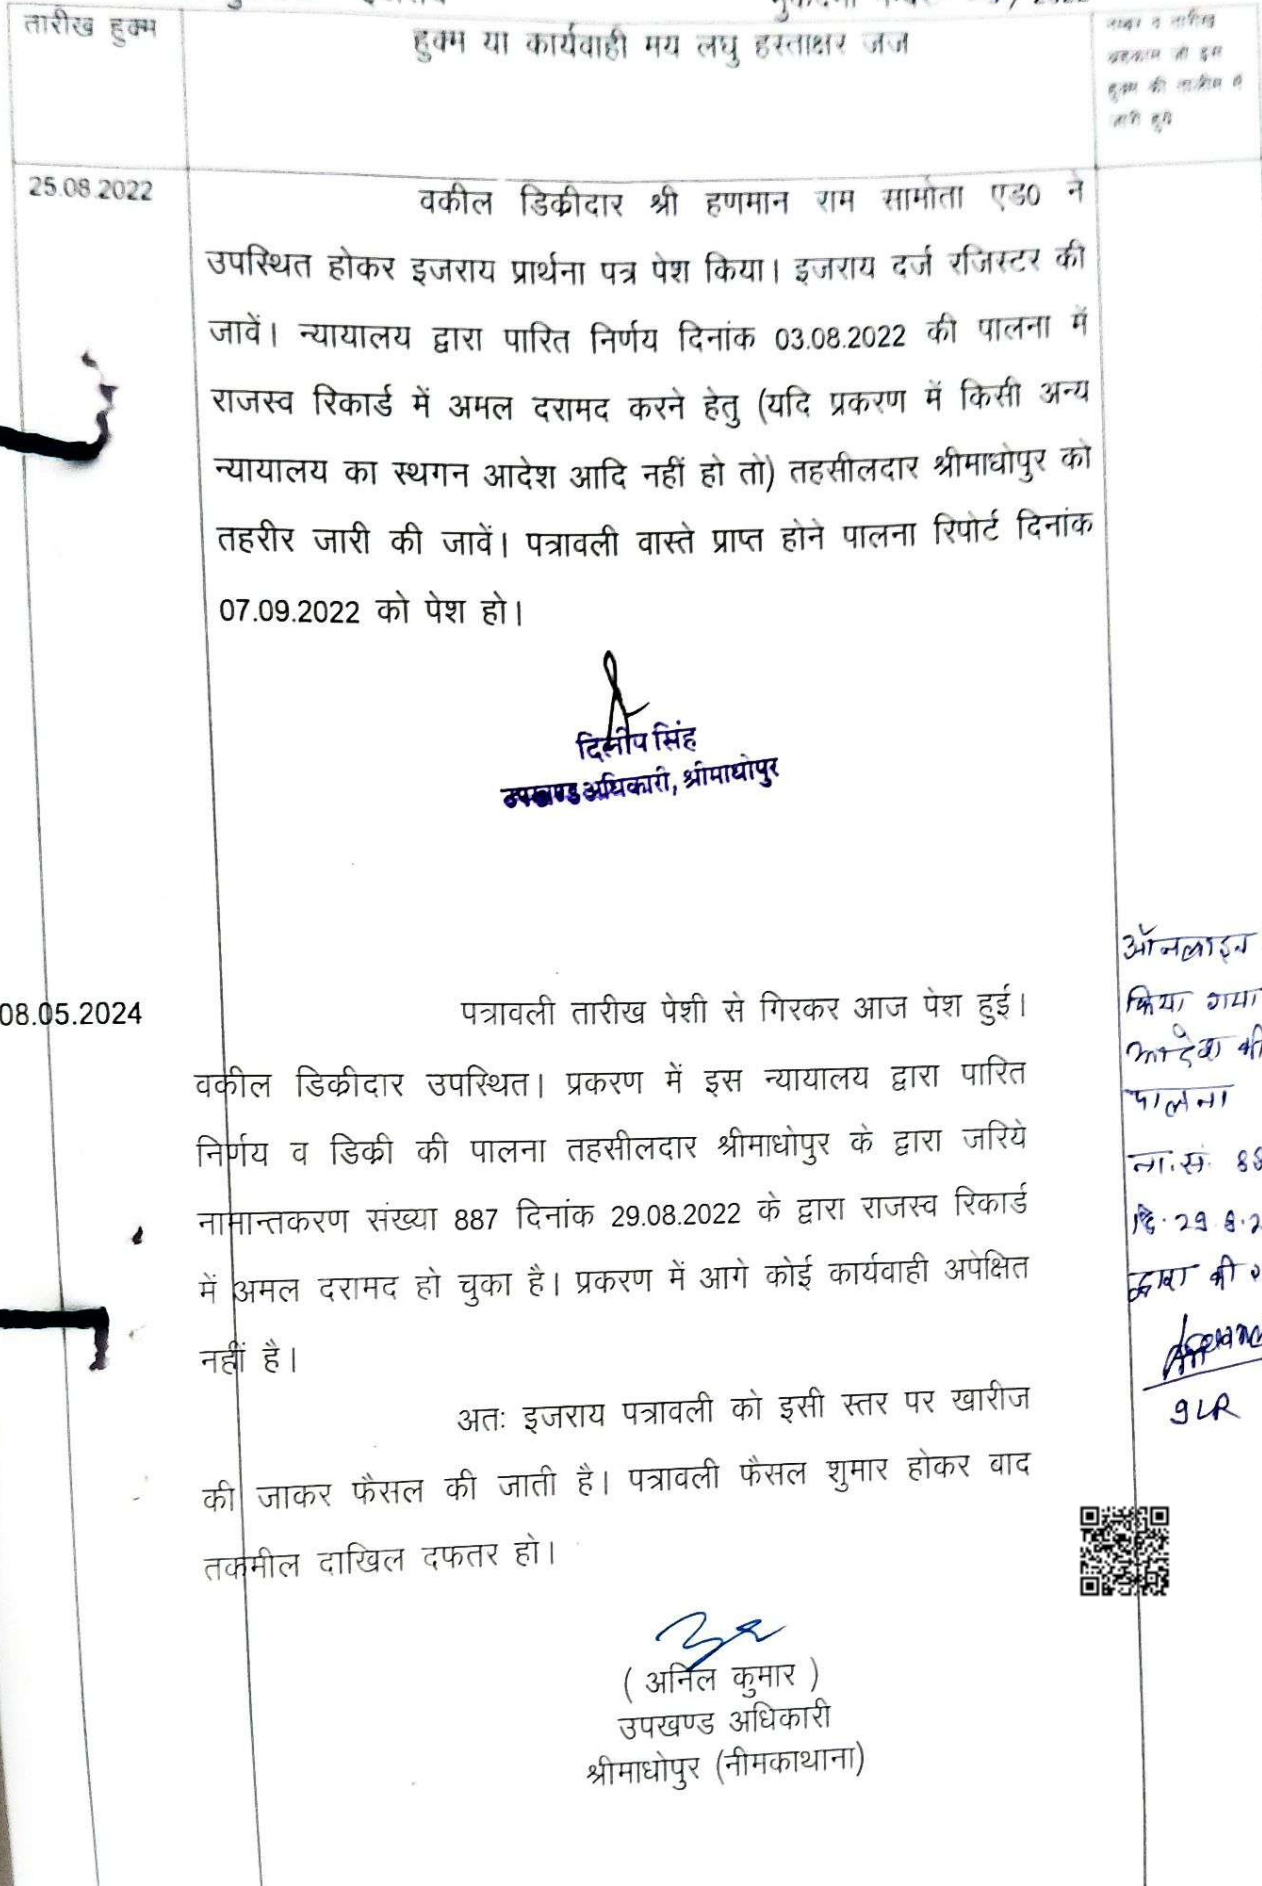 तारीख हुक्म
हुक्म या कार्यवाही मय लघु हस्ताक्षर जज
नम्बर व तारीख
अहकाम जो इस
हुक्म की तामील में
जारी हुये
25.08.2022
वकील डिक्रीदार श्री हणमान राम सामोता एड0 ने
उपस्थित होकर इजराय प्रार्थना पत्र पेश किया। इजराय दर्ज रजिस्टर की
जावें। न्यायालय द्वारा पारित निर्णय दिनांक 03.08.2022 की पालना में
राजस्व रिकार्ड में अमल दरामद करने हेतु (यदि प्रकरण में किसी अन्य
न्यायालय का स्थगन आदेश आदि नहीं हो तो) तहसीलदार श्रीमाधोपुर को
तहरीर जारी की जावें। पत्रावली वास्ते प्राप्त होने पालना रिपोर्ट दिनांक
07.09.2022 को पेश हो।
दिलीप सिंह
उपखण्ड अधिकारी, श्रीमाधोपुर
08.05.2024
पत्रावली तारीख पेशी से गिरकर आज पेश हुई।
वकील डिक्रीदार उपस्थित। प्रकरण में इस न्यायालय द्वारा पारित
निर्णय व डिक्री की पालना तहसीलदार श्रीमाधोपुर के द्वारा जरिये
नामान्तकरण संख्या 887 दिनांक 29.08.2022 के द्वारा राजस्व रिकार्ड
में अमल दरामद हो चुका है। प्रकरण में आगे कोई कार्यवाही अपेक्षित
नहीं है।
अतः इजराय पत्रावली को इसी स्तर पर खारीज
की जाकर फैसल की जाती है। पत्रावली फैसल शुमार होकर बाद
तकमील दाखिल दफतर हो।
ऑनलाइन
किया गया
आदेश की
पालना
ना.सं. 88
दि. 29.8.2
द्वारा की
( अनिल कुमार )
उपखण्ड अधिकारी
श्रीमाधोपुर (नीमकाथाना)